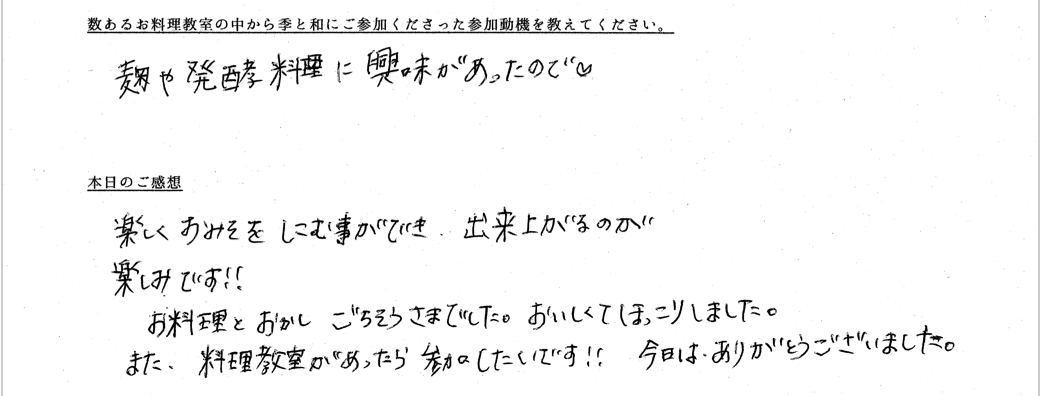 数あるお料理教室の中から季と和にご参加くださった参加動機を教えてください。
麹や発酵料理に興味があったので♡
本日のご感想
楽しくおみそをしこむ事ができ、出来上がるのが
楽しみです!!
お料理とおかし ごちそうさまでした。おいしくてほっこりしました。
また、料理教室があったら参加したいです!! 今日は、ありがとうございました。